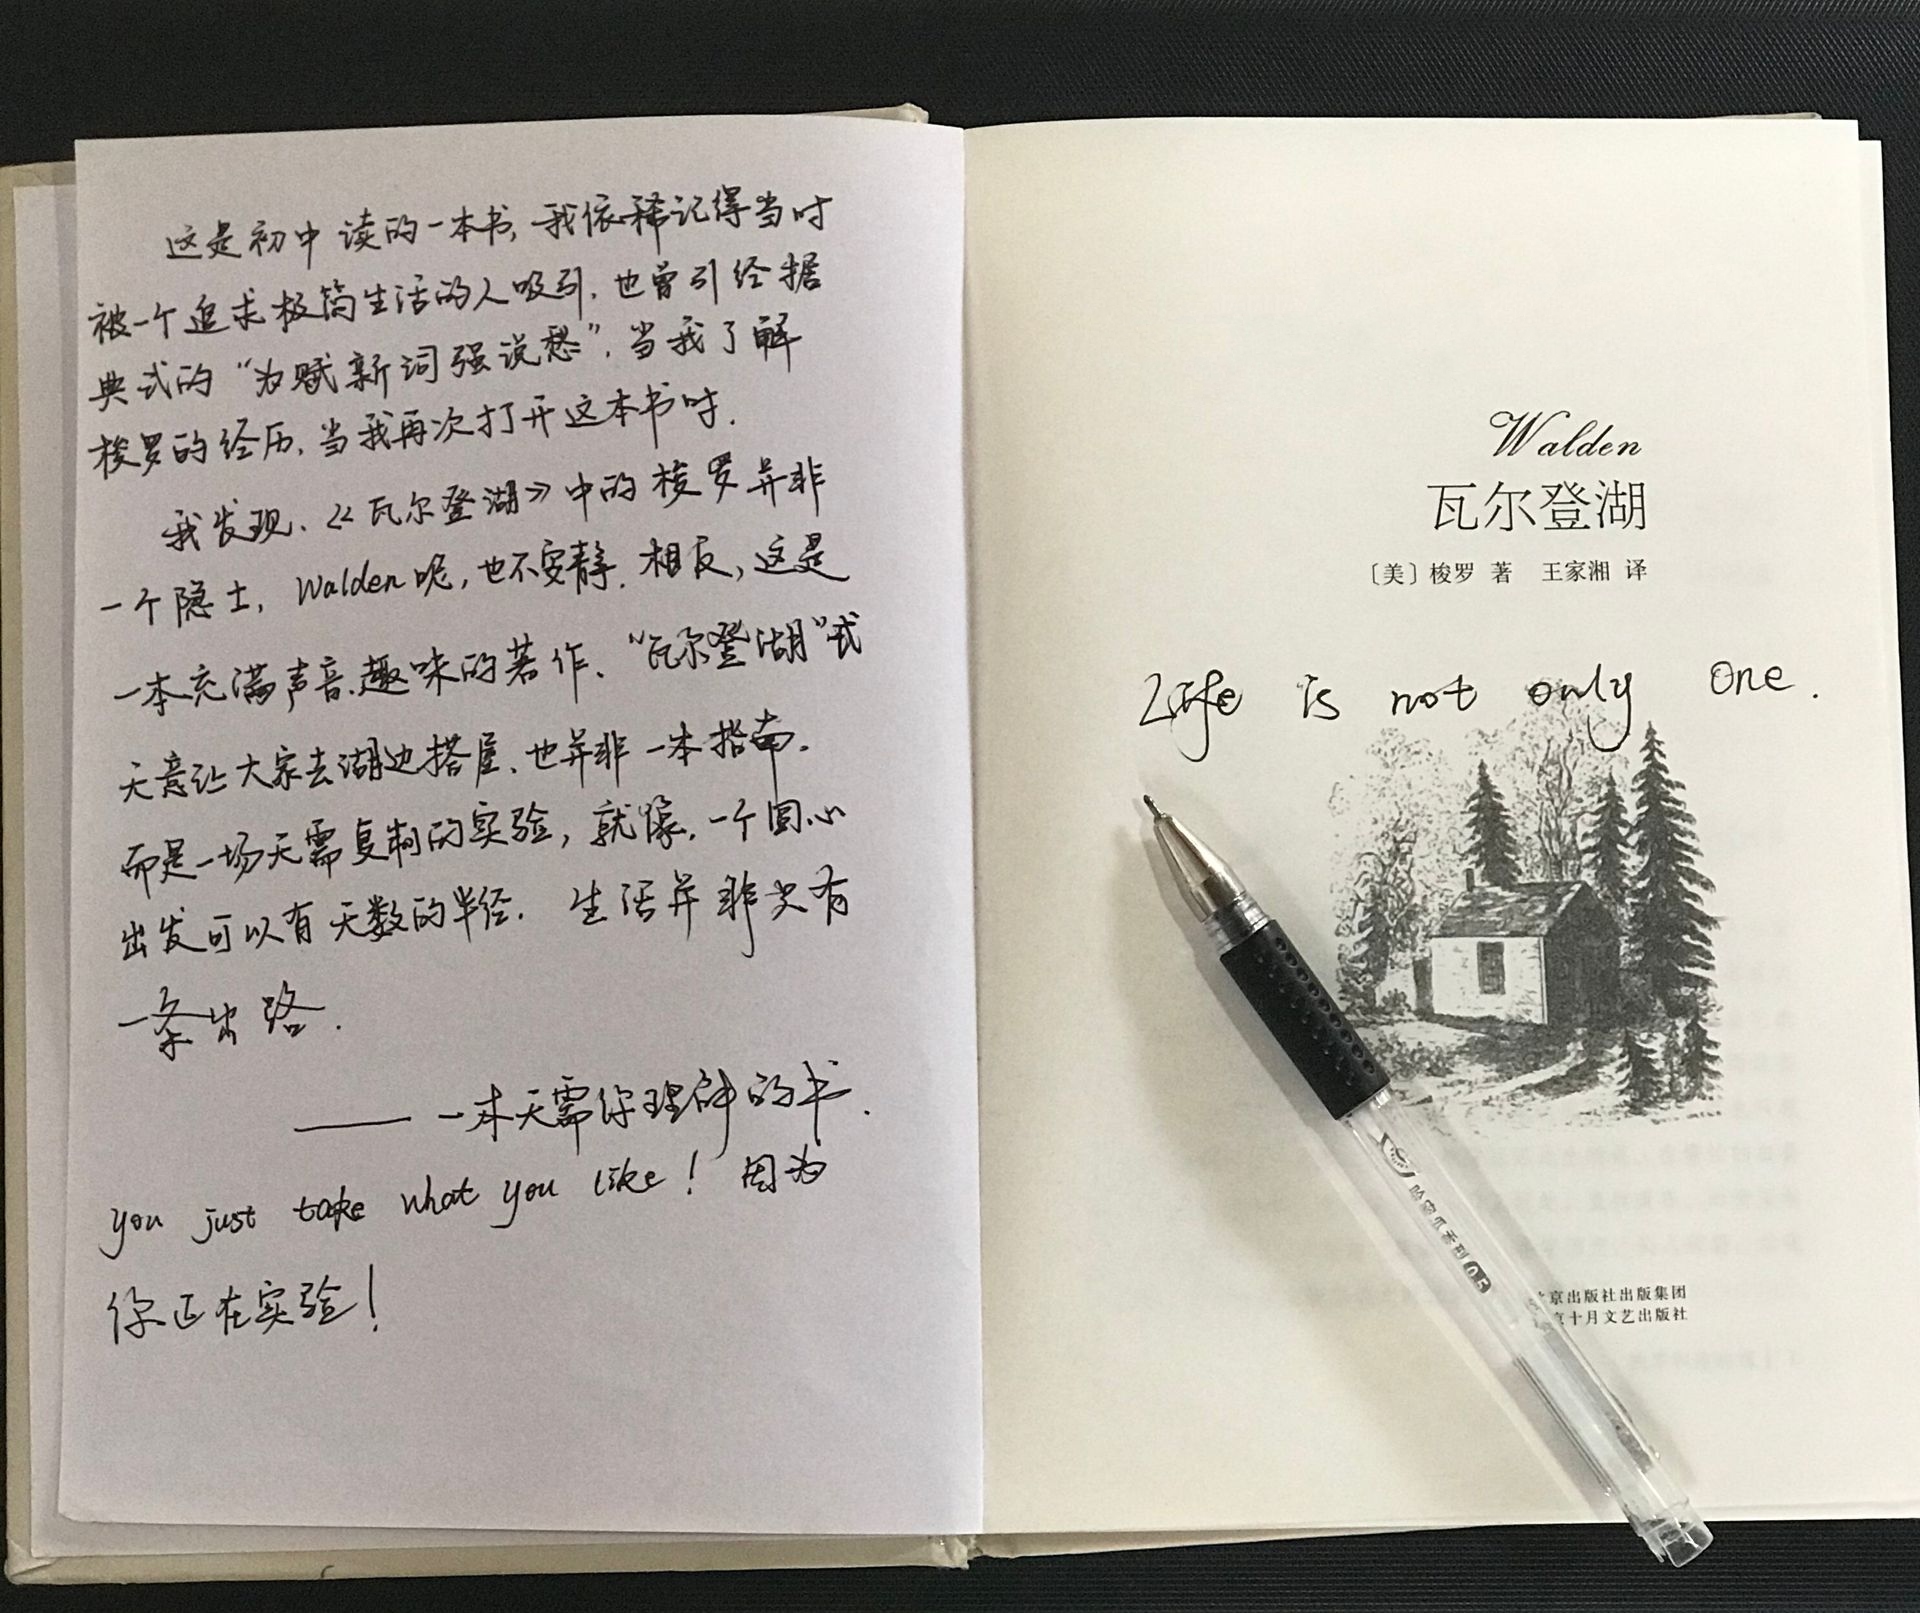 这是初中读的一本书,我依稀记得当时
被一个追求极简生活的人吸引,也曾引经据
典式的“为赋新词强说愁”,当我了解
梭罗的经历,当我再次打开这本书时.
我发现、《瓦尔登湖》中的梭罗并非
一个隐士, Walden呢,也不安静.相反,这是
一本充满声音、趣味的著作、“瓦尔登湖”式
无意让大家去湖边搭屋、也并非一本指南.
而是一场无需复制的实验,就像,一个圆心
出发可以有无数的半径. 生活并非只有
一条出路.
——一本无需你理解的书.
you just take what you like! 因为
你正在实验!
Walden
瓦尔登湖
〔美〕梭罗 著 王家湘 译
Life is not only one.
京出版社出版集团
京十月文艺出版社
0.5